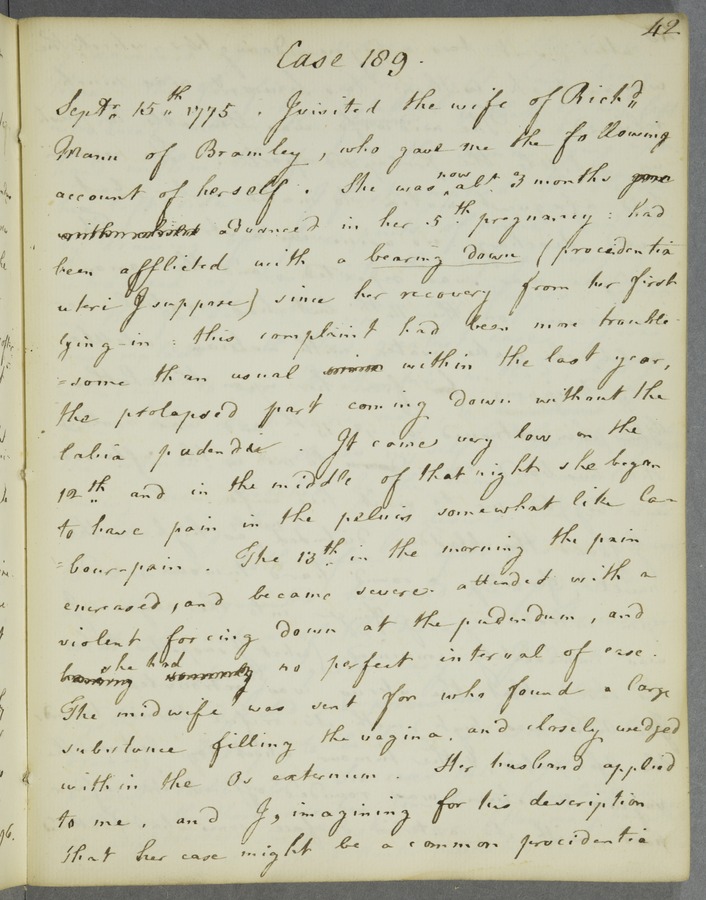 42
Case 189.
Septr. 15th 1775. I visited the wife of Richd.
Mann of Bramley, who gave me the following
account of herself. She was now abt. 3 months gone
advanced in her 5th pregnancy: had
been afflicted with a bearing down (procidentia
uteri I suppose) since her recovery from her first
lying-in: this complaint had been more trouble-
=some than usual within the last year,
the prolapsed part coming down without the
labia pudendi. It came very low on the
12th and in the middle of that night she began
to have pain in the pelvis somewhat like la-
=bour-pain. The 13th in the morning the pain
encreased, and became severe attended with a
violent forcing down at the pudendum, and
having she had no perfect interval of ease.
The midwife was sent for who found a large
substance filling the vagina, and closely wedged
within the Os externum. Her husband applied
to me, and I, imagining for his description
that her case might be a common procidentia